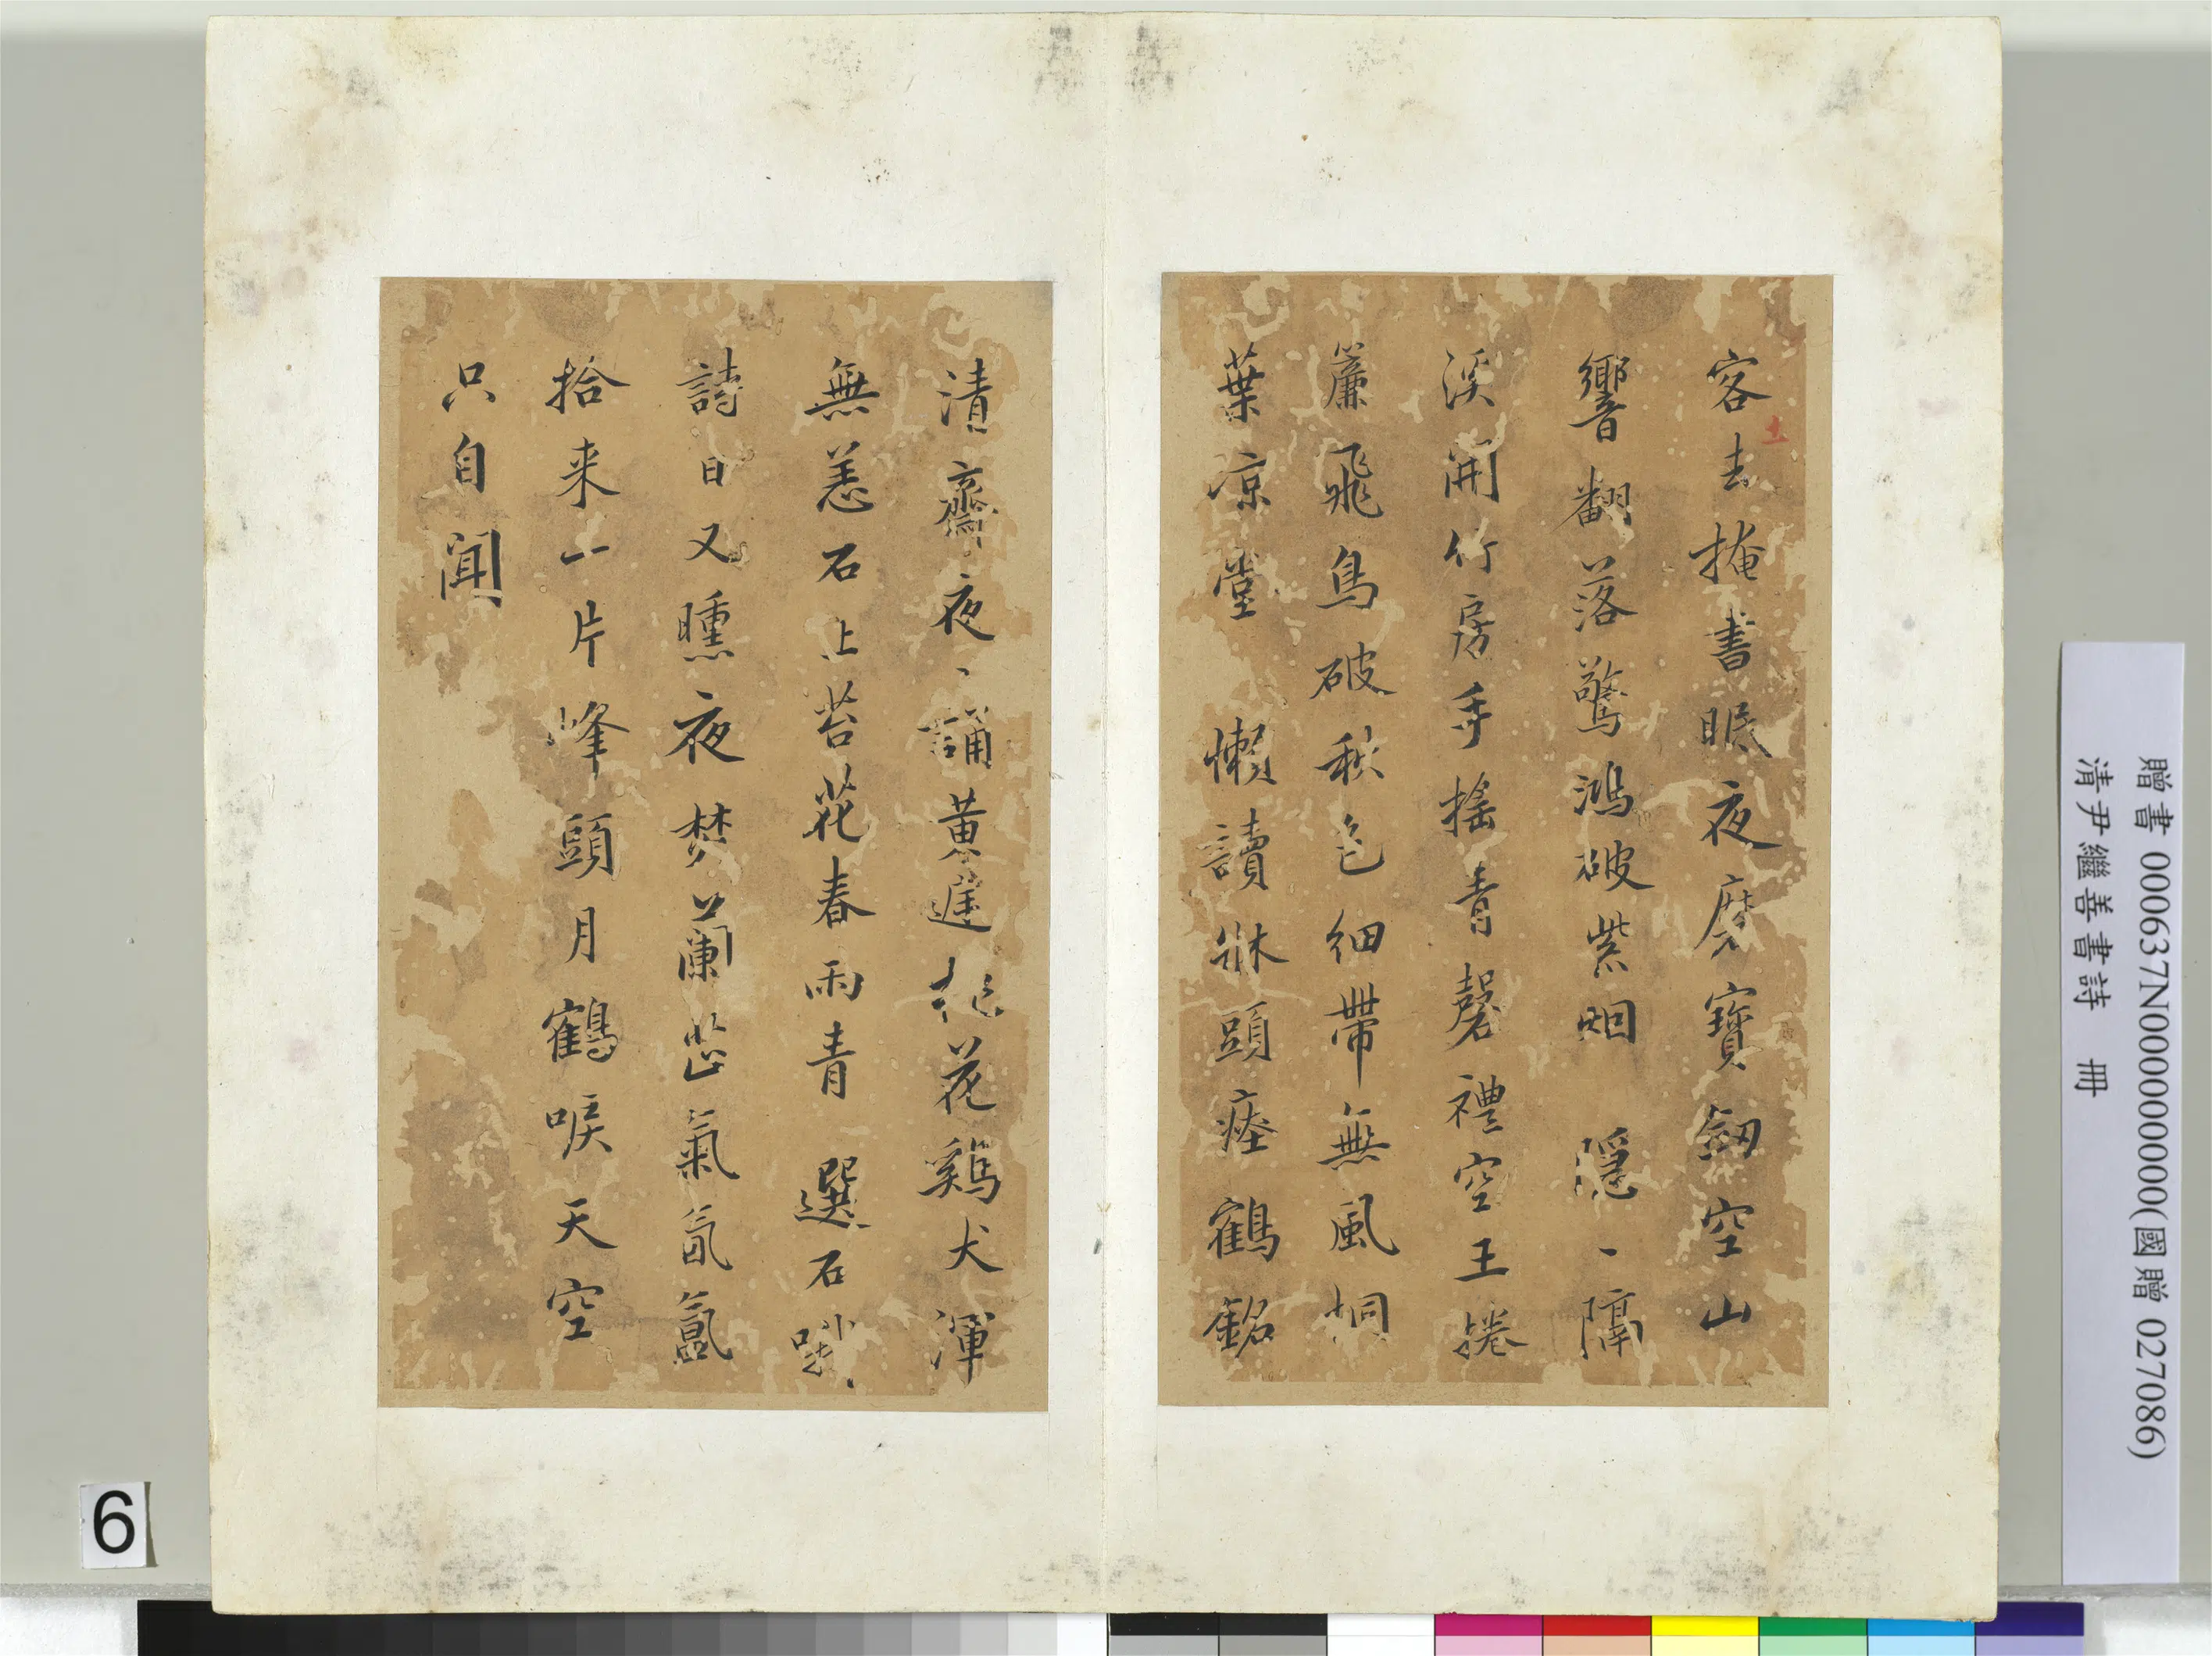 客去掩書眠夜磨寶劒空山
響翻落驚鴻破紫烟 隱、隔
溪開竹房手搖青磬禮空王捲
簾飛鳥破秋色細帶無風桐
葉凉堂 懶讀牀頭瘞鶴銘
清齋夜、誦黄庭桃花雞犬渾
無恙石上苔花春雨青 選石
詩日又曛夜焚蘭蕋氣氤氳
拾来一片峰頭月鶴唳天空
只自聞
贈書 000637N000000000(國贈 027086)
清尹繼善書詩 冊
6